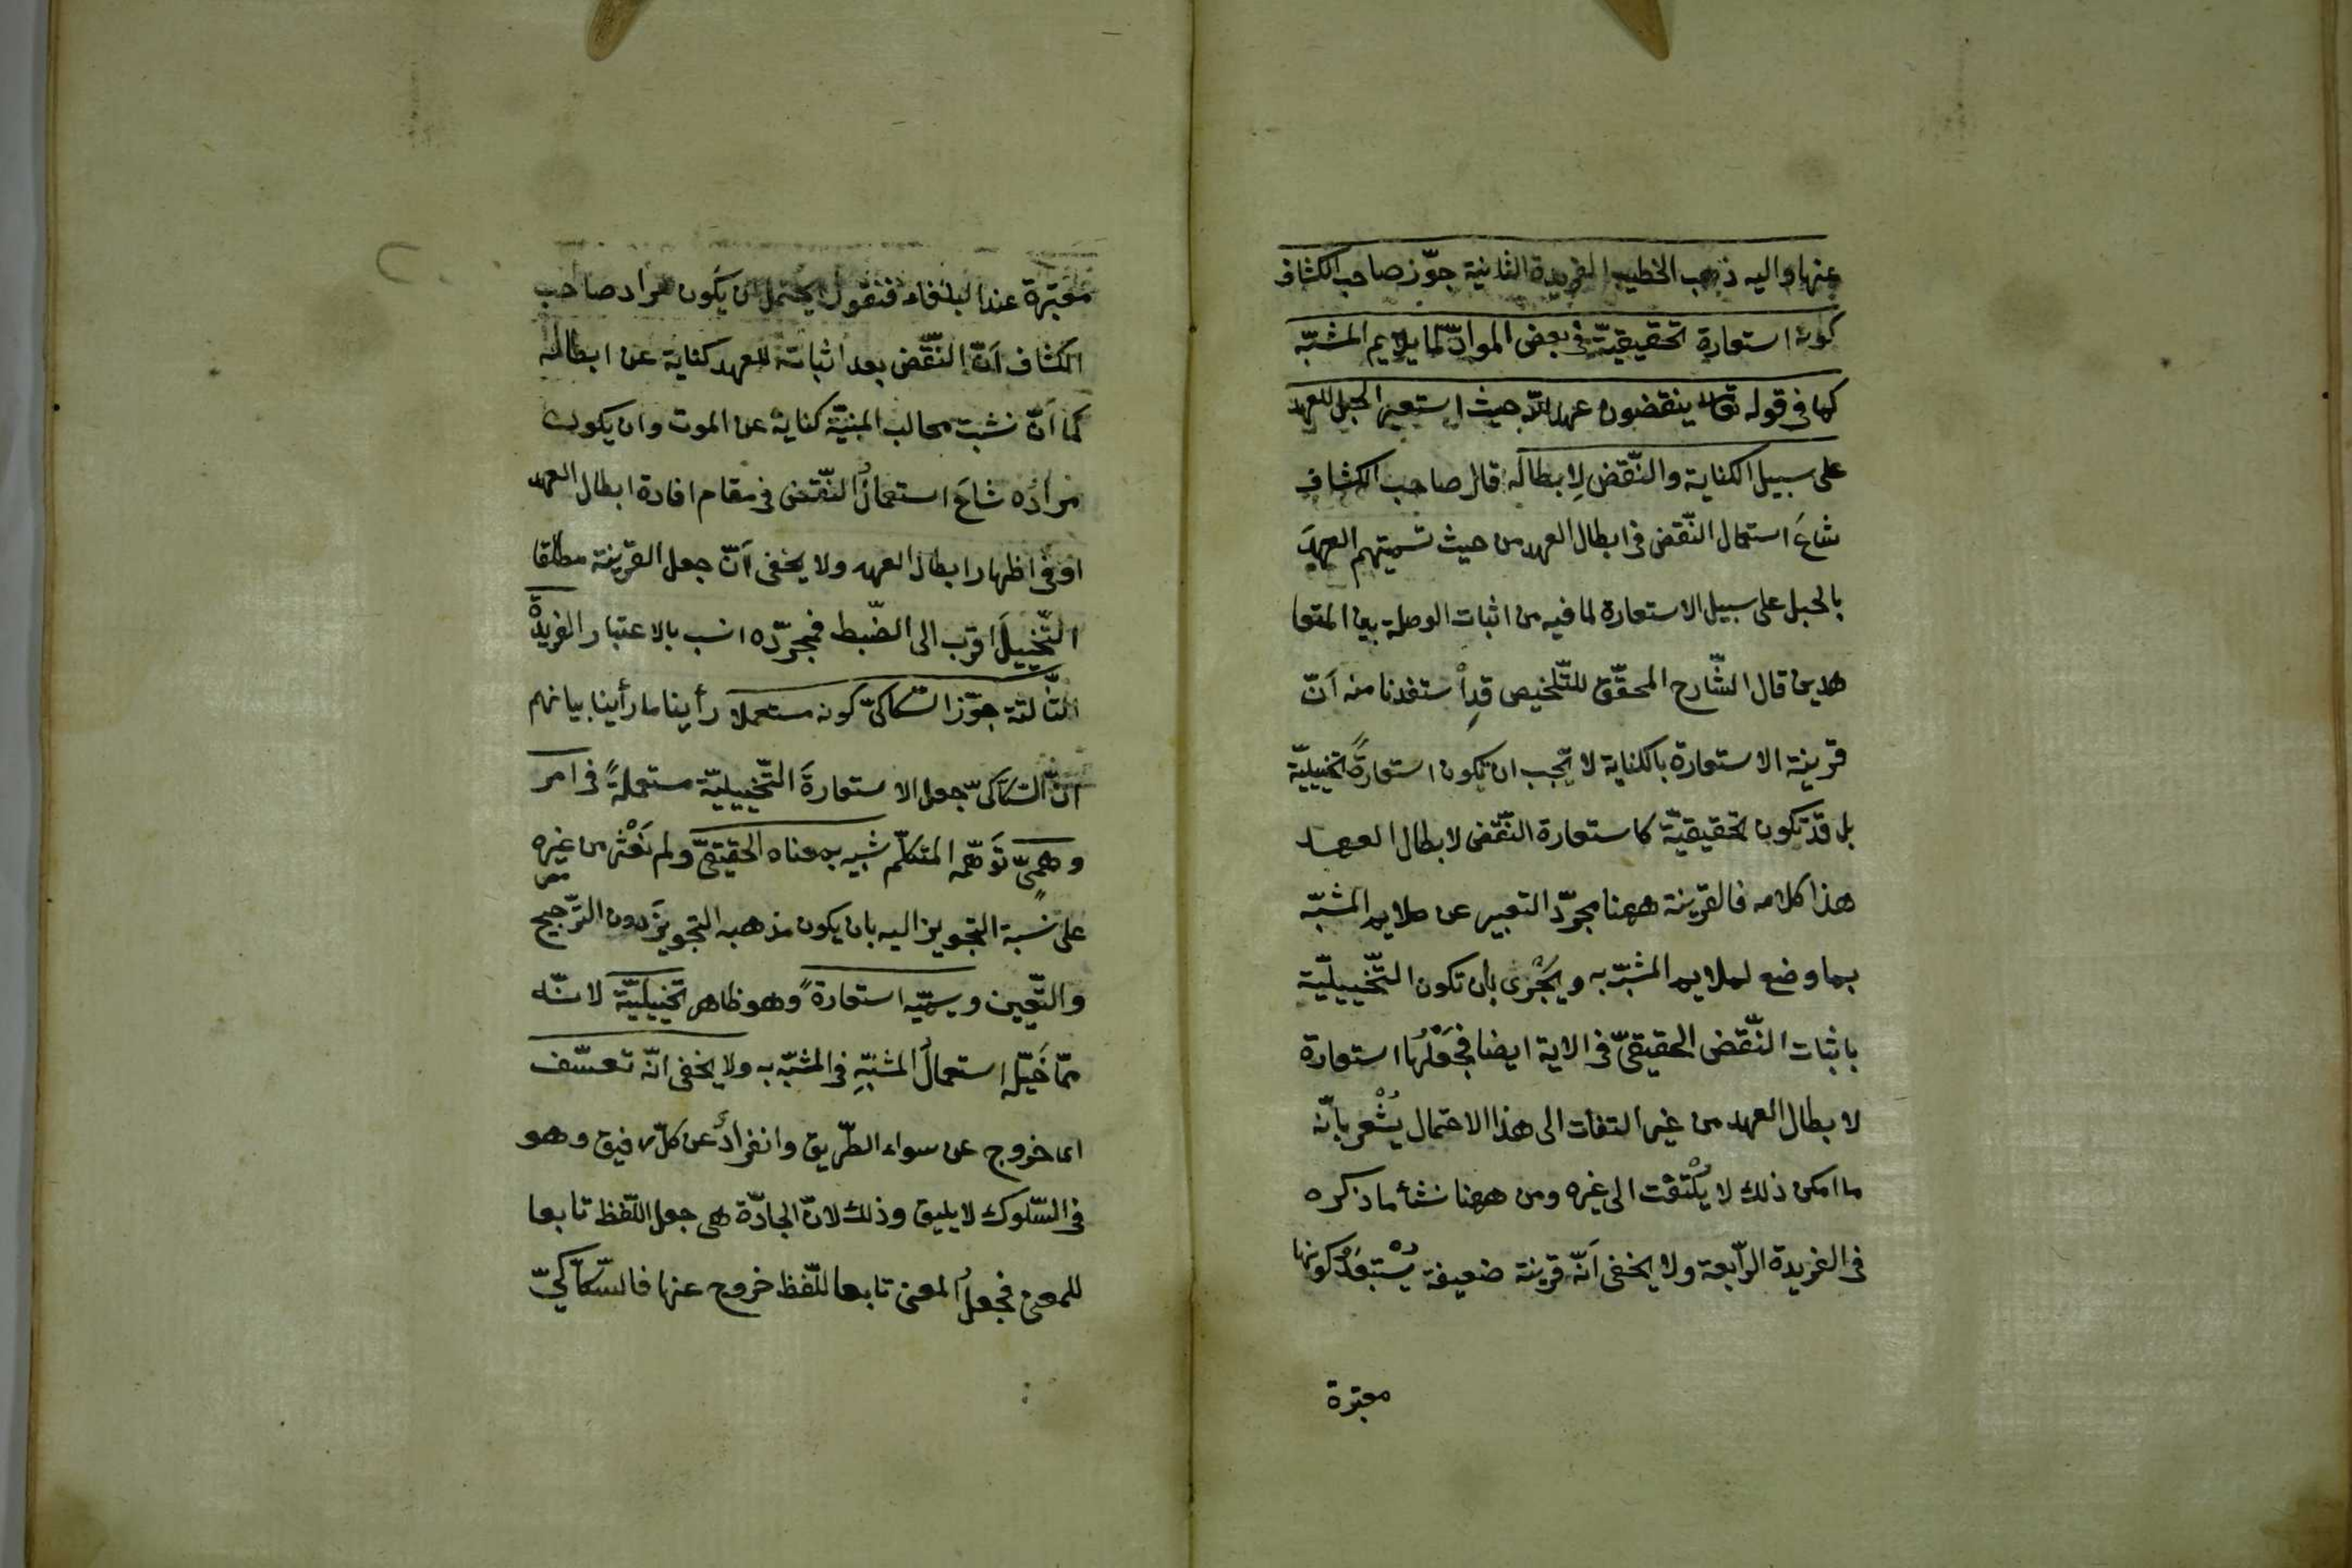 عنها واليه ذهب الخطيب الفريدة الثانية جوّز صاحب الكشاف
كونه استعارة تحقيقيّة في بعض الموادّ لما يلايم المشبّه
كما في قوله تعالى ينقضون عهد الله حيث استعير الحبل للعهد
على سبيل الكناية والنّقض لِابطاله قال صاحب الكشاف
شاعَ استعمال النّقض في ابطال العهد من حيث تسميتهم العهدَ
بالحبل على سبيل الاستعارة لما فيه من اثبات الوصلة بين المتعا
هدين قال الشّارح المحقّق للتّلخيص قدِ اْستفدنا منه اَنّ
قرينة الاستعارة بالكناية لا يجب ان تكون استعارةً تخييليّة
بل قد تكون تحقيقيّة كاستعارة النّقض لابطال العهد
هذا كلامه فالقرينة ههنا مجرّد التعبير عن ملايم المشبّه
بما وضع لملايم المشبّه به ويَجْزى بان تكون التّخييليّة
باثبات النّقض الحقيقيّ في الاية ايضا فجَعْلُها استعارة
لابطال العهد من غير التفات الى هذا الاحتمال يُشْعر بانّه
ما امكن ذلك لا يُلْتفت الى غيره ومن ههنا نشأ ما ذكره
في الفريدة الرّابعة ولا يخفى اَنّه قرينة ضعيفة يُسْتبعَدُ كونها
معتبرة
معتبرة عند البلغاء فنقول يحتمل ان يكون مراد صاحب
الكشاف اَنّ النّقض بعد اثباته للعهد كناية عن ابطاله
كما اَنّ نشبت مخالب المنيّة كناية عن الموت وان يكون
مرادُه شاعَ استعمالُ النّقض في مقام افادة ابطال العهد
او في اظهار ابطال العهد ولا يخفى اَنّ جعل القرينة مطلقا
التّخييلَ اقرب الى الضّبط فمجرّده انسب بالاعتبار الفريدةْ
الثّالثة جوّز السّكاكيّ كونه مستعملا رأينا ما رأينا بيانهم
انّ السّكاكيّ جعل الاستعارةَ التّخييليّة مستعملةً في امر
وهميّ تَوهّمه المتكلّم شبيه بمعناه الحقيقيّ ولم نَعْثر من غيره
على نسبة التجويز اليه بان يكون مذهبه التجويزَ دون التّرجيح
والتّعيين ويسمّيه استعارةً وهو ظاهر تخييليّة لانّه
ممّا خَيّل استعمالُ المشبّهِ في المشبّه به ولا يخفى انّه تعسّف
اى خروج عن سواء الطّريق وانفرادٌ عن كلّ رفيق وهو
في السّلوك لا يليق وذلك لانّ الجادّة هي جعل اللّفظ تابعا
للمعنى فجعلُ المعنى تابعا للّفظ خروج عنها فالسّكاكيّ